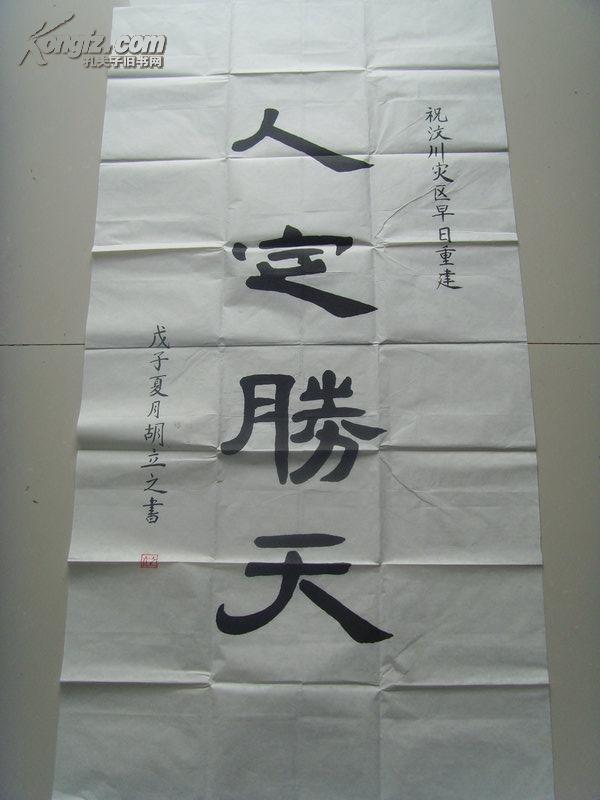 Kongfz.com
孔夫子旧书网
祝汶川灾区早日重建
人定勝天
戊子夏月胡立之書